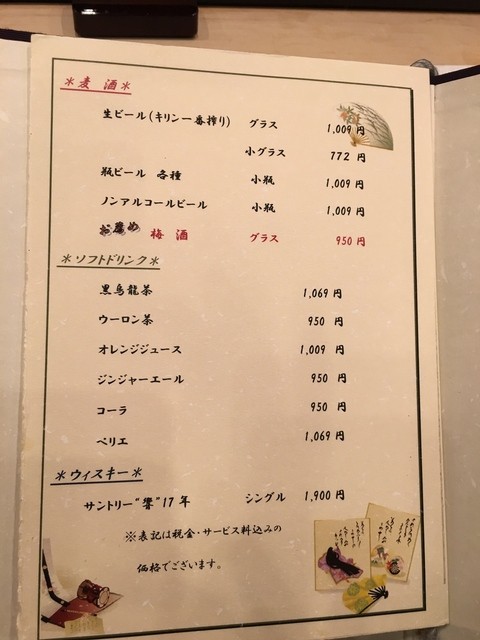 ＊麦 酒＊
生ビール(キリン一番搾り) グラス 1,009 円
小グラス 772 円
瓶ビール 各種 小瓶 1,009 円
ノンアルコールビール 小瓶 1,009 円
お薦め 梅 酒 グラス 950 円
＊ソフトドリンク＊
黒烏龍茶 1,069 円
ウーロン茶 950 円
オレンジジュース 1,009 円
ジンジャーエール 950 円
コーラ 950 円
ペリエ 1,069 円
＊ウィスキー＊
サントリー“響”17 年 シングル 1,900 円
※表記は税金・サービス料込みの
価格でございます。